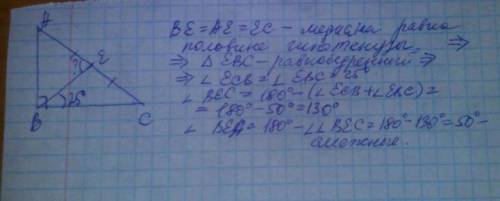 A
E
?
25°
B
C
BE = AE = EC - медиана равна
половине гипотенузы ⇒
⇒ △ EBC - равнобедренный ⇒
⇒ ∠ ECB = ∠ EBC = 25°
∠ BEC = 180° - (∠ ECB + ∠ EBC) =
= 180° - 50° = 130°
∠ BEA = 180° - ∠ BEC = 180° - 130° = 50° -
смежные.